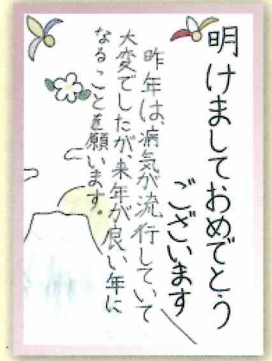 明けましておめでとう
ございます
昨年は、病気が流行していて
大変でしたが、来年が良い年に
なることを願います。